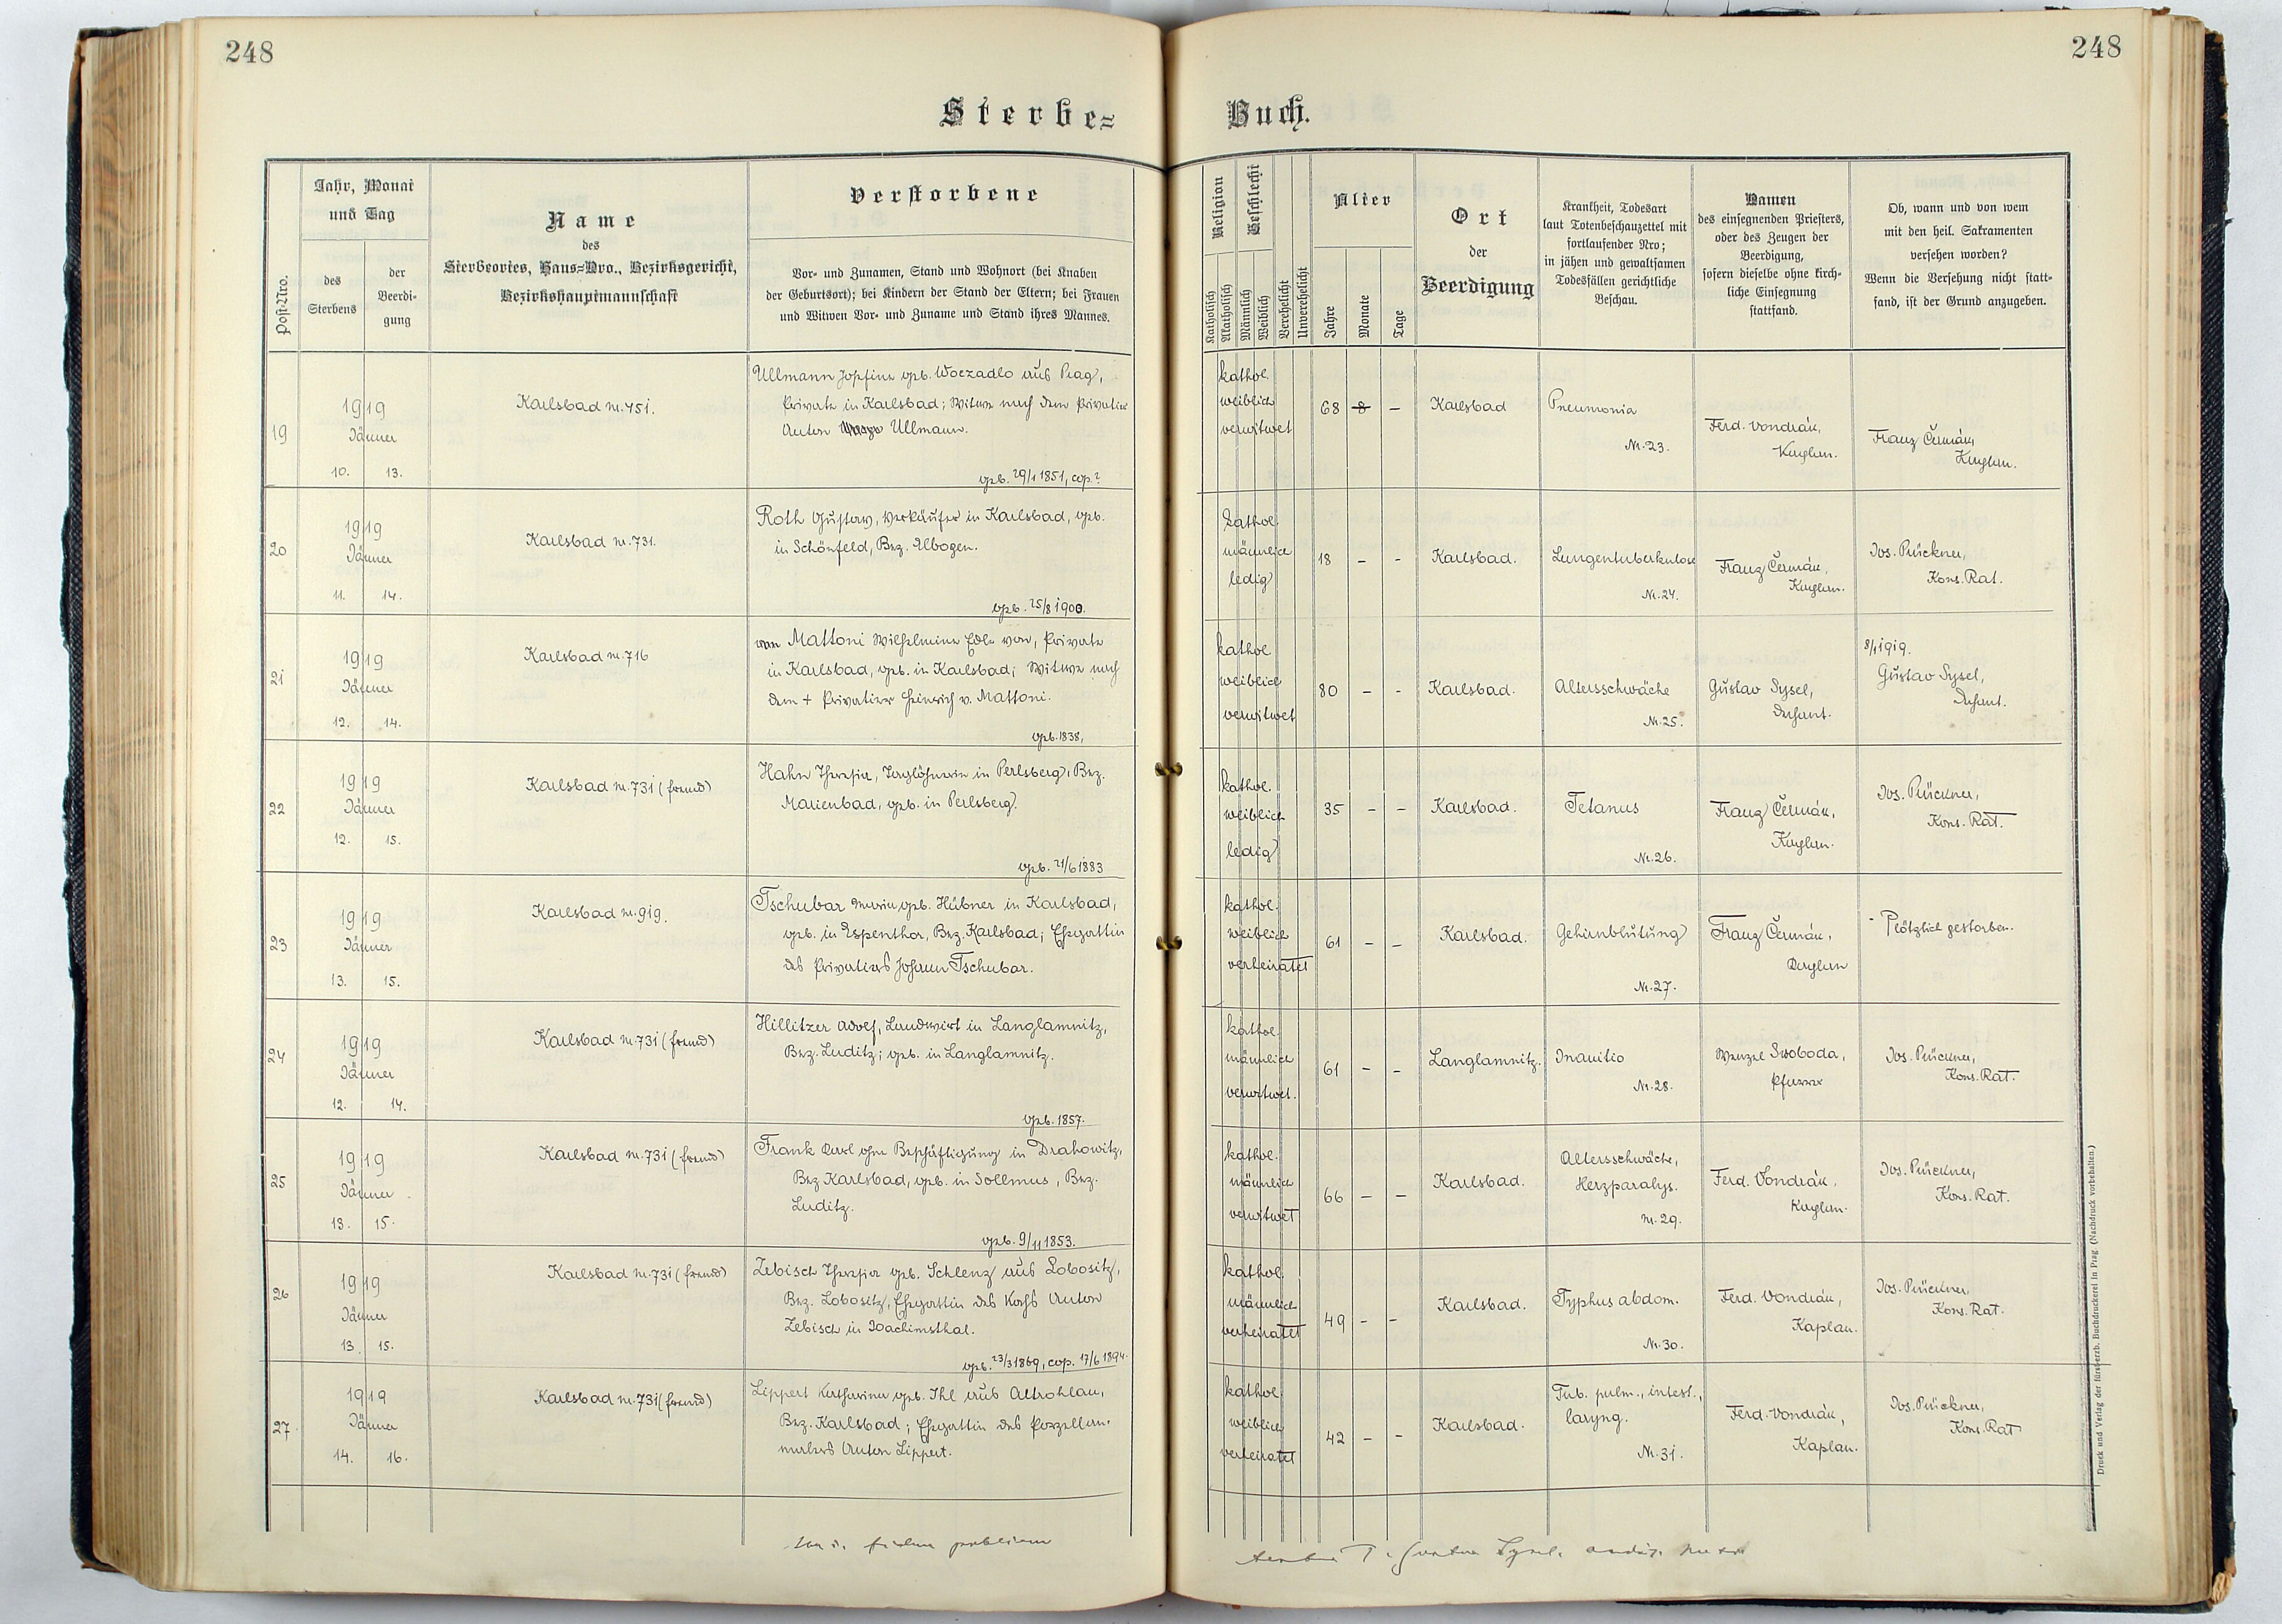 248
248
Sterbe=
Buch.
Post-Nro.
Jahr, Monat
und Tag
des
Sterbens
der
Beerdi-
gung
Name
des
Sterbeortes, Haus=Nro., Bezirksgericht,
Bezirkshauptmannschaft
Verstorbene
Vor- und Zunamen, Stand und Wohnort (bei Knaben
der Geburtsort); bei Kindern der Stand der Eltern; bei Frauen
und Witwen Vor- und Zuname und Stand ihres Mannes.
Religion
Geschlecht
Katholisch
Akatholisch
Männlich
Weiblich
Verehelicht
Unverehelicht
Alter
Jahre
Monate
Tage
Ort
der
Beerdigung
Krankheit, Todesart
laut Totenbeschauzettel mit
fortlaufender Nro;
in jähen und gewaltsamen
Todesfällen gerichtliche
Beschau.
Namen
des einsegnenden Priesters,
oder des Zeugen der
Beerdigung,
sofern dieselbe ohne kirch-
liche Einsegnung
stattfand.
Ob, wann und von wem
mit den heil. Sakramenten
versehen worden?
Wenn die Versehung nicht statt-
fand, ist der Grund anzugeben.
19
1919
Jänner
10. 13.
Karlsbad nr. 451.
Ullmann Josefine geb. Woczadlo aus Prag,
Private in Karlsbad; Witwe nach dem Privatier
Anton Ullmann.
geb. 29/1 1851, cop.?
kathol.
weiblich
verwitwet
68 8 –
Karlsbad
Pneumonia
Nr. 23.
Ferd. Vondrák,
Kaplan.
Franz Čermák,
Kaplan.
20
1919
Jänner
11. 14.
Karlsbad nr. 731.
Roth Gustav, Verkäufer in Karlsbad, geb.
in Schönfeld, Bez. Elbogen.
geb. 25/8 1900.
kathol.
männlich
ledig
18 – -
Karlsbad.
Lungentuberkulose
Nr. 24.
Franz Čermák,
Kaplan.
Jos. Prückner,
Kons. Rat.
21
1919
Jänner
12. 14.
Karlsbad nr. 716
von Mattoni Wilhelmine Edle von, Private
in Karlsbad, geb. in Karlsbad; Witwe nach
dem + Privatier Heinrich v. Mattoni.
geb. 1838,
kathol
weiblich
verwitwet
80 – -
Karlsbad.
Altersschwäche
Nr. 25.
Gustav Sysel,
Dechant.
8/1 1919.
Gustav Sysel,
Dechant.
22
1919
Jänner
12. 15.
Karlsbad nr. 731 (fremd)
Hahn Theresia, Taglöhnerin in Perlsberg, Bez.
Marienbad, geb. in Perlsberg.
geb. 21/6 1883
kathol.
weiblich
ledig
35 – –
Karlsbad.
Tetanus
Nr. 26.
Franz Čermák,
Kaplan.
Jos. Prückner,
Kons. Rat.
23
1919
Jänner
13. 15.
Karlsbad nr. 919.
Tschubar Maria geb. Hübner in Karlsbad,
geb. in Espenthor, Bez. Karlsbad; Ehegattin
des Privatiers Johann Tschubar.
kathol.
weiblich
verheiratet
61 – –
Karlsbad.
Gehirnblutung
Nr. 27.
Franz Čermák,
Kaplan
- Plötzlich gestorben.
24
1919
Jänner
12. 14.
Karlsbad nr. 731 (fremd)
Hillitzer Adolf, Landwirt in Langlamnitz,
Bez. Luditz; geb. in Langlamnitz.
geb. 1857.
kathol.
männlich
verwitwet.
61 – –
Langlamnitz.
Inanitio
Nr. 28.
Wenzel Swoboda,
Pfarrer
Jos. Prückner,
Kons. Rat.
25
1919
Jänner
13. 15.
Karlsbad nr. 731 (fremd)
Frank Karl ohne Beschäftigung in Drahowitz,
Bez Karlsbad, geb. in Sollmus, Bez.
Luditz.
geb. 9/11 1853.
kathol.
männlich
verwitwet
66 – –
Karlsbad.
Altersschwäche,
Herzparalys.
nr. 29.
Ferd. Vondrák,
Kaplan.
Jos. Prückner,
Kons. Rat.
26
1919
Jänner
13. 15.
Karlsbad nr. 731 (fremd)
Zebisch Theresia geb. Schlenz aus Lobositz,
Bez. Lobositz, Ehegattin des Kochs Anton
Zebisch in Joachimsthal.
geb. 23/3 1869, cop. 17/6 1894.
kathol.
männlich
verheiratet
49 – –
Karlsbad.
Typhus abdom.
Nr. 30.
Ferd. Vondrák,
Kaplan.
Jos. Prückner,
Kons. Rat.
27
1919
Jänner
14. 16.
Karlsbad nr. 731 (fremd)
Lippert Katharina geb. Ihl aus Altrohlau,
Bez. Karlsbad; Ehegattin des Porzellan-
malers Anton Lippert.
kathol.
weiblich
verheiratet
42 – –
Karlsbad.
Tub. pulm., intest.,
laryng.
Nr. 31.
Ferd. Vondrák,
Kaplan.
Jos. Prückner,
Kons. Rat
fidem publicam
Sysel
Druck und Verlag der fürst-erzb. Buchdruckerei in Prag. (Nachdruck vorbehalten.)